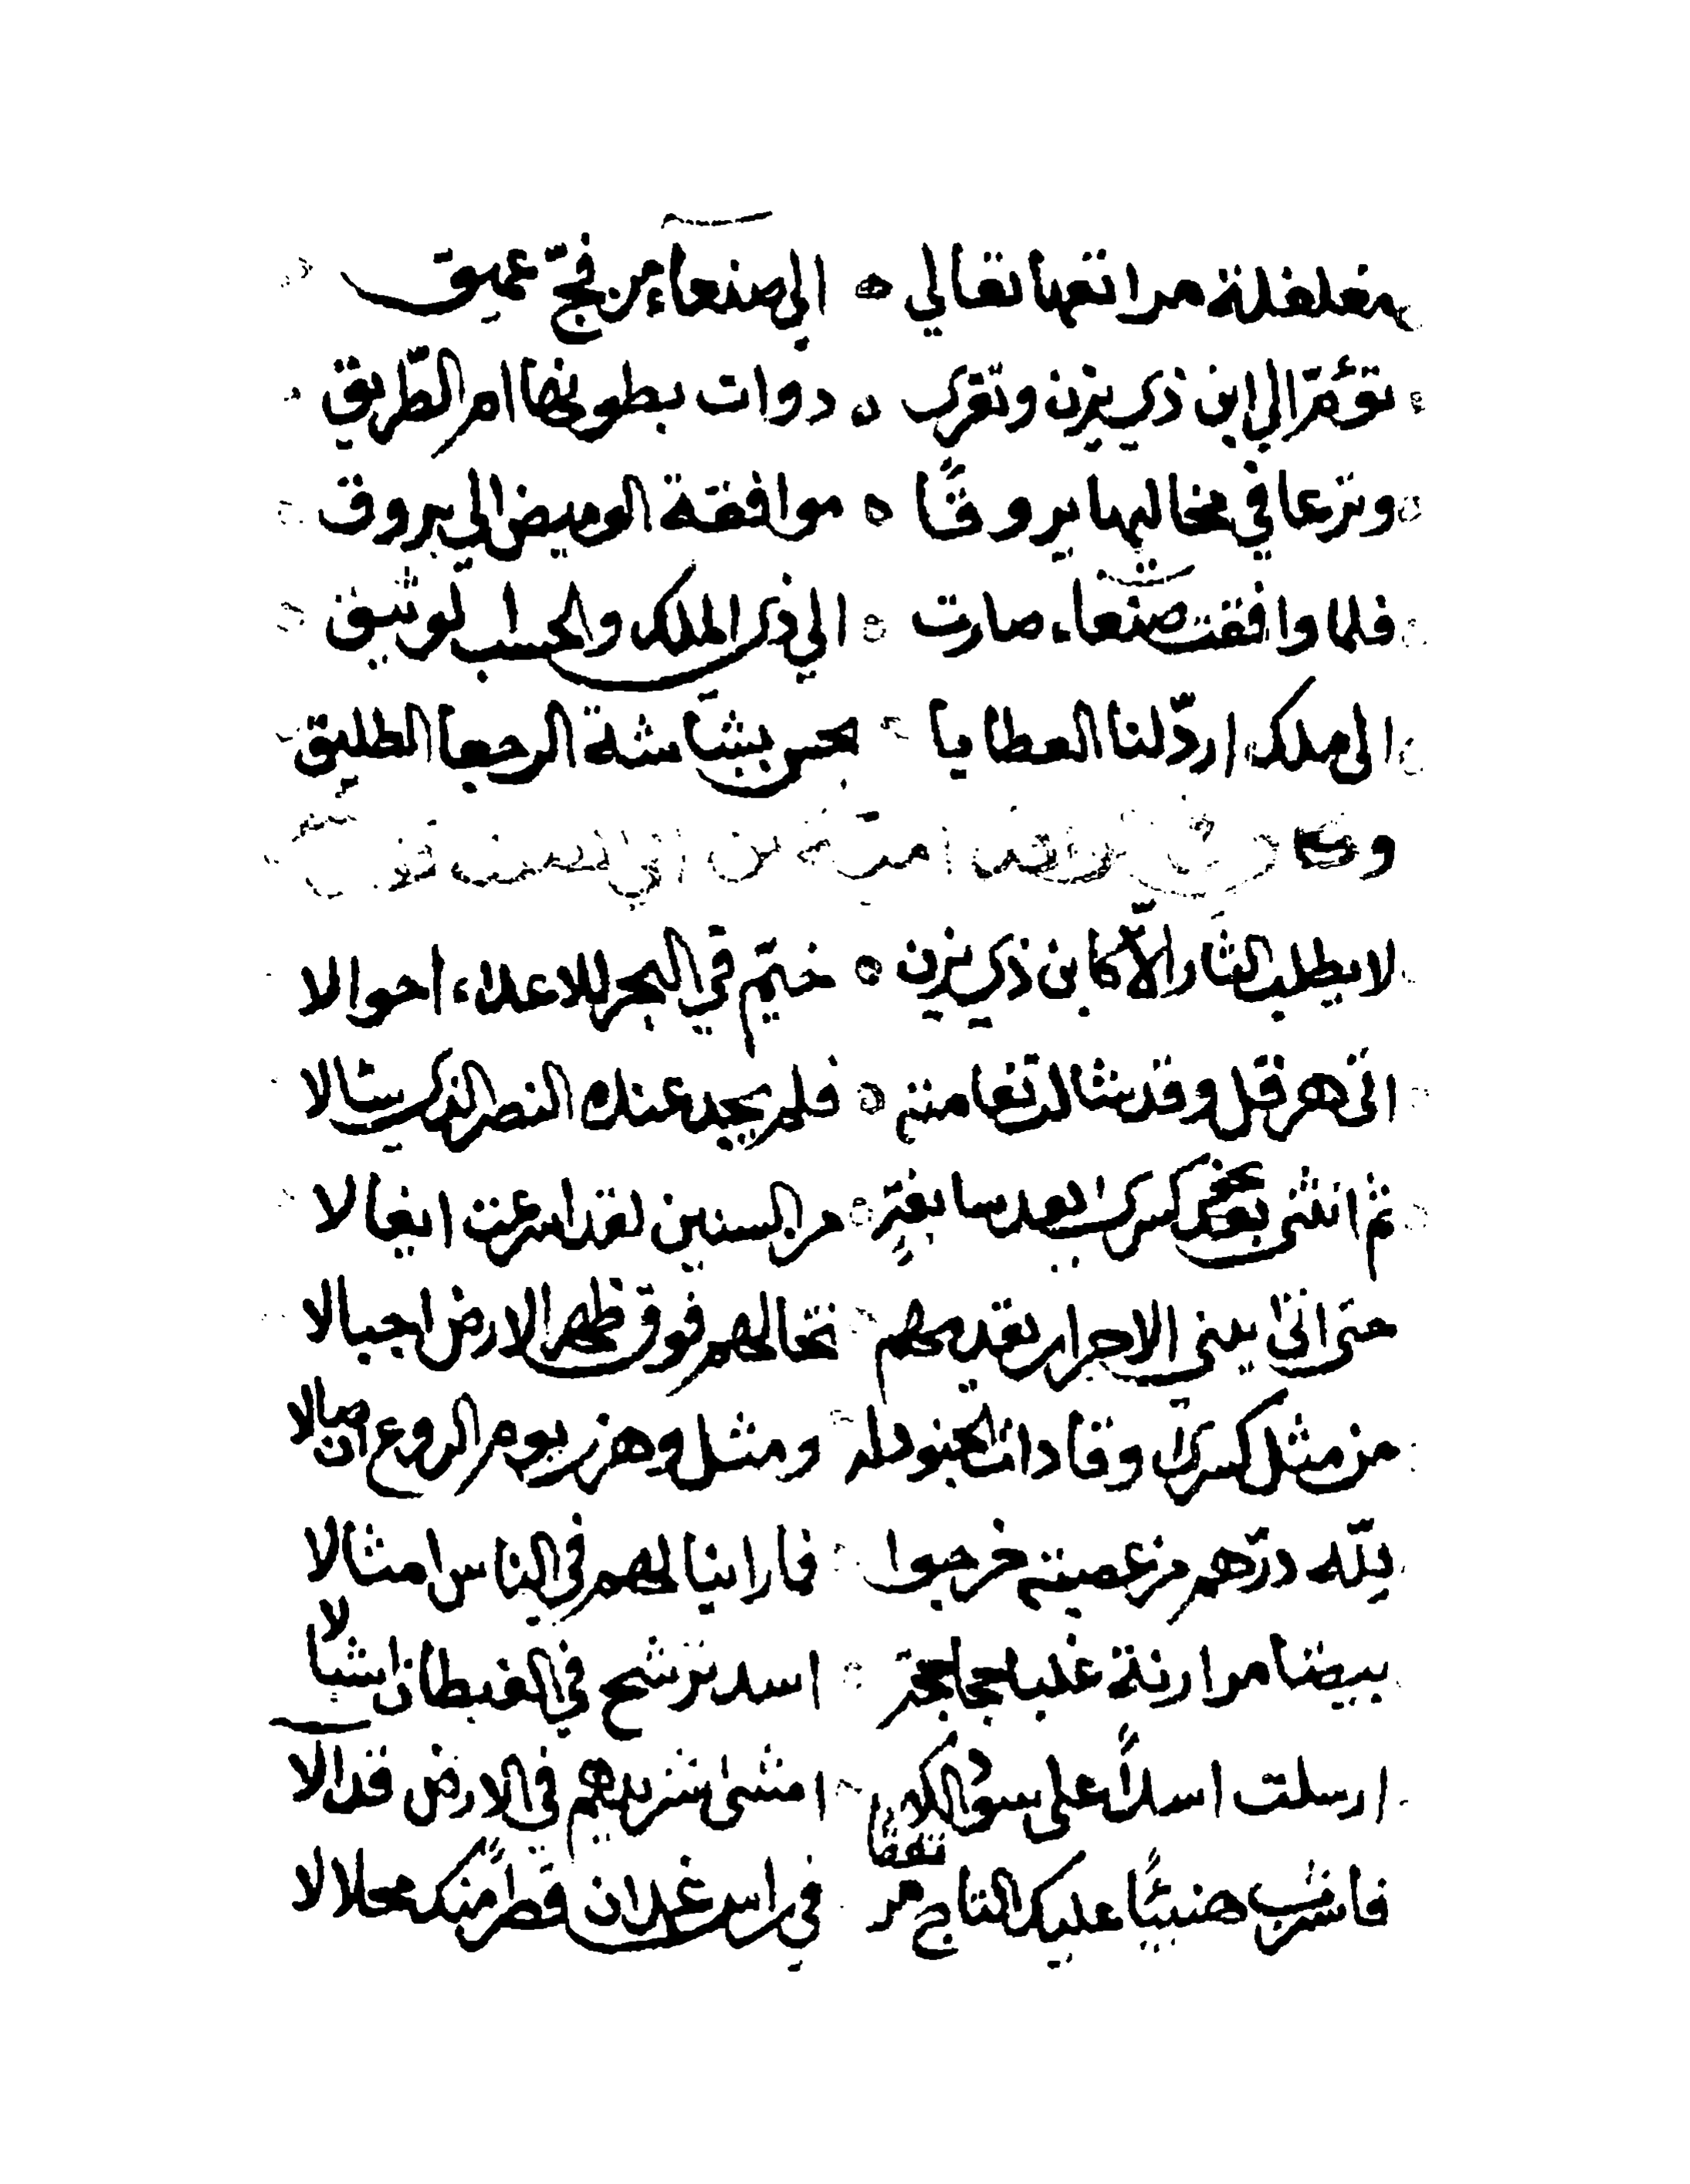 مغلغلة مراتعها تقالي ه الي صنعاء من فج عميق
تؤمّ الي ابن ذي يزن وتقرى ه دوات بطونها ام الطريق
وترعا في مخاليها بروقًا ه موافقة الوميض الي بروق
فلما وافقت صنعاء صارت ه الي ذي الملك والحسب لوثيق
الى ملك اردّ لنا العطايا بحسن بشاشة الرجعا الطليق
وقال امية بن ابي الصلت
لا يطلب الثار الاّ كابن ذي يزن ه ختيم في البحر للاعداء احوالا
اتى هرقل وقد شالت نعامته ه فلم يجد عنده النصر الذي سالا
ثم انثنى نحو كسرى بعد سابعةٍ ه من السنين لقد اسرعت ايغالا
حتى اتى ببني الاحرار يقدمهم تخالهم فوق ظهر الارض اجبالا
من مثل كسرى وقادات الجنود له ومثل وهرز يوم الروع ان صالا
لله درّهم من عصبة خرجوا فما راينا لهم في الناس امثالا
بيضا مرازنة غلبا جحاجحة اسد ترشح في الغيطان اشبالا
ارسلت اسداً على سود الكلاب امشى شريدهم في الارض قدالا
فاشرب هنيئًا عليك التاج مرتفقا في راس غمدان قصرا منك محلالا